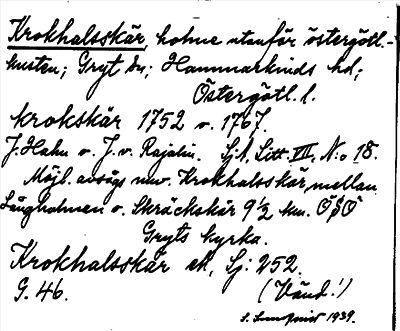 Krokhalsskär, holme utanför östergötl.-
kusten; Gryt sn; Hammarkinds hd;
Östergötl. l.
Krokskär 1752 o. 1767.
J. Hahn o. J. v. Rajalin. Sj.A, Litt. VII, N:o 18.
Möjl. avsågs nuv. Krokhalsskär, mellan
Långholmen o. Skräckskär 9 1/2 km. OSO
Gryts kyrka.
Krokhalsskär ek, Sj: 252.
G. 46. (Vänd!)
1939.